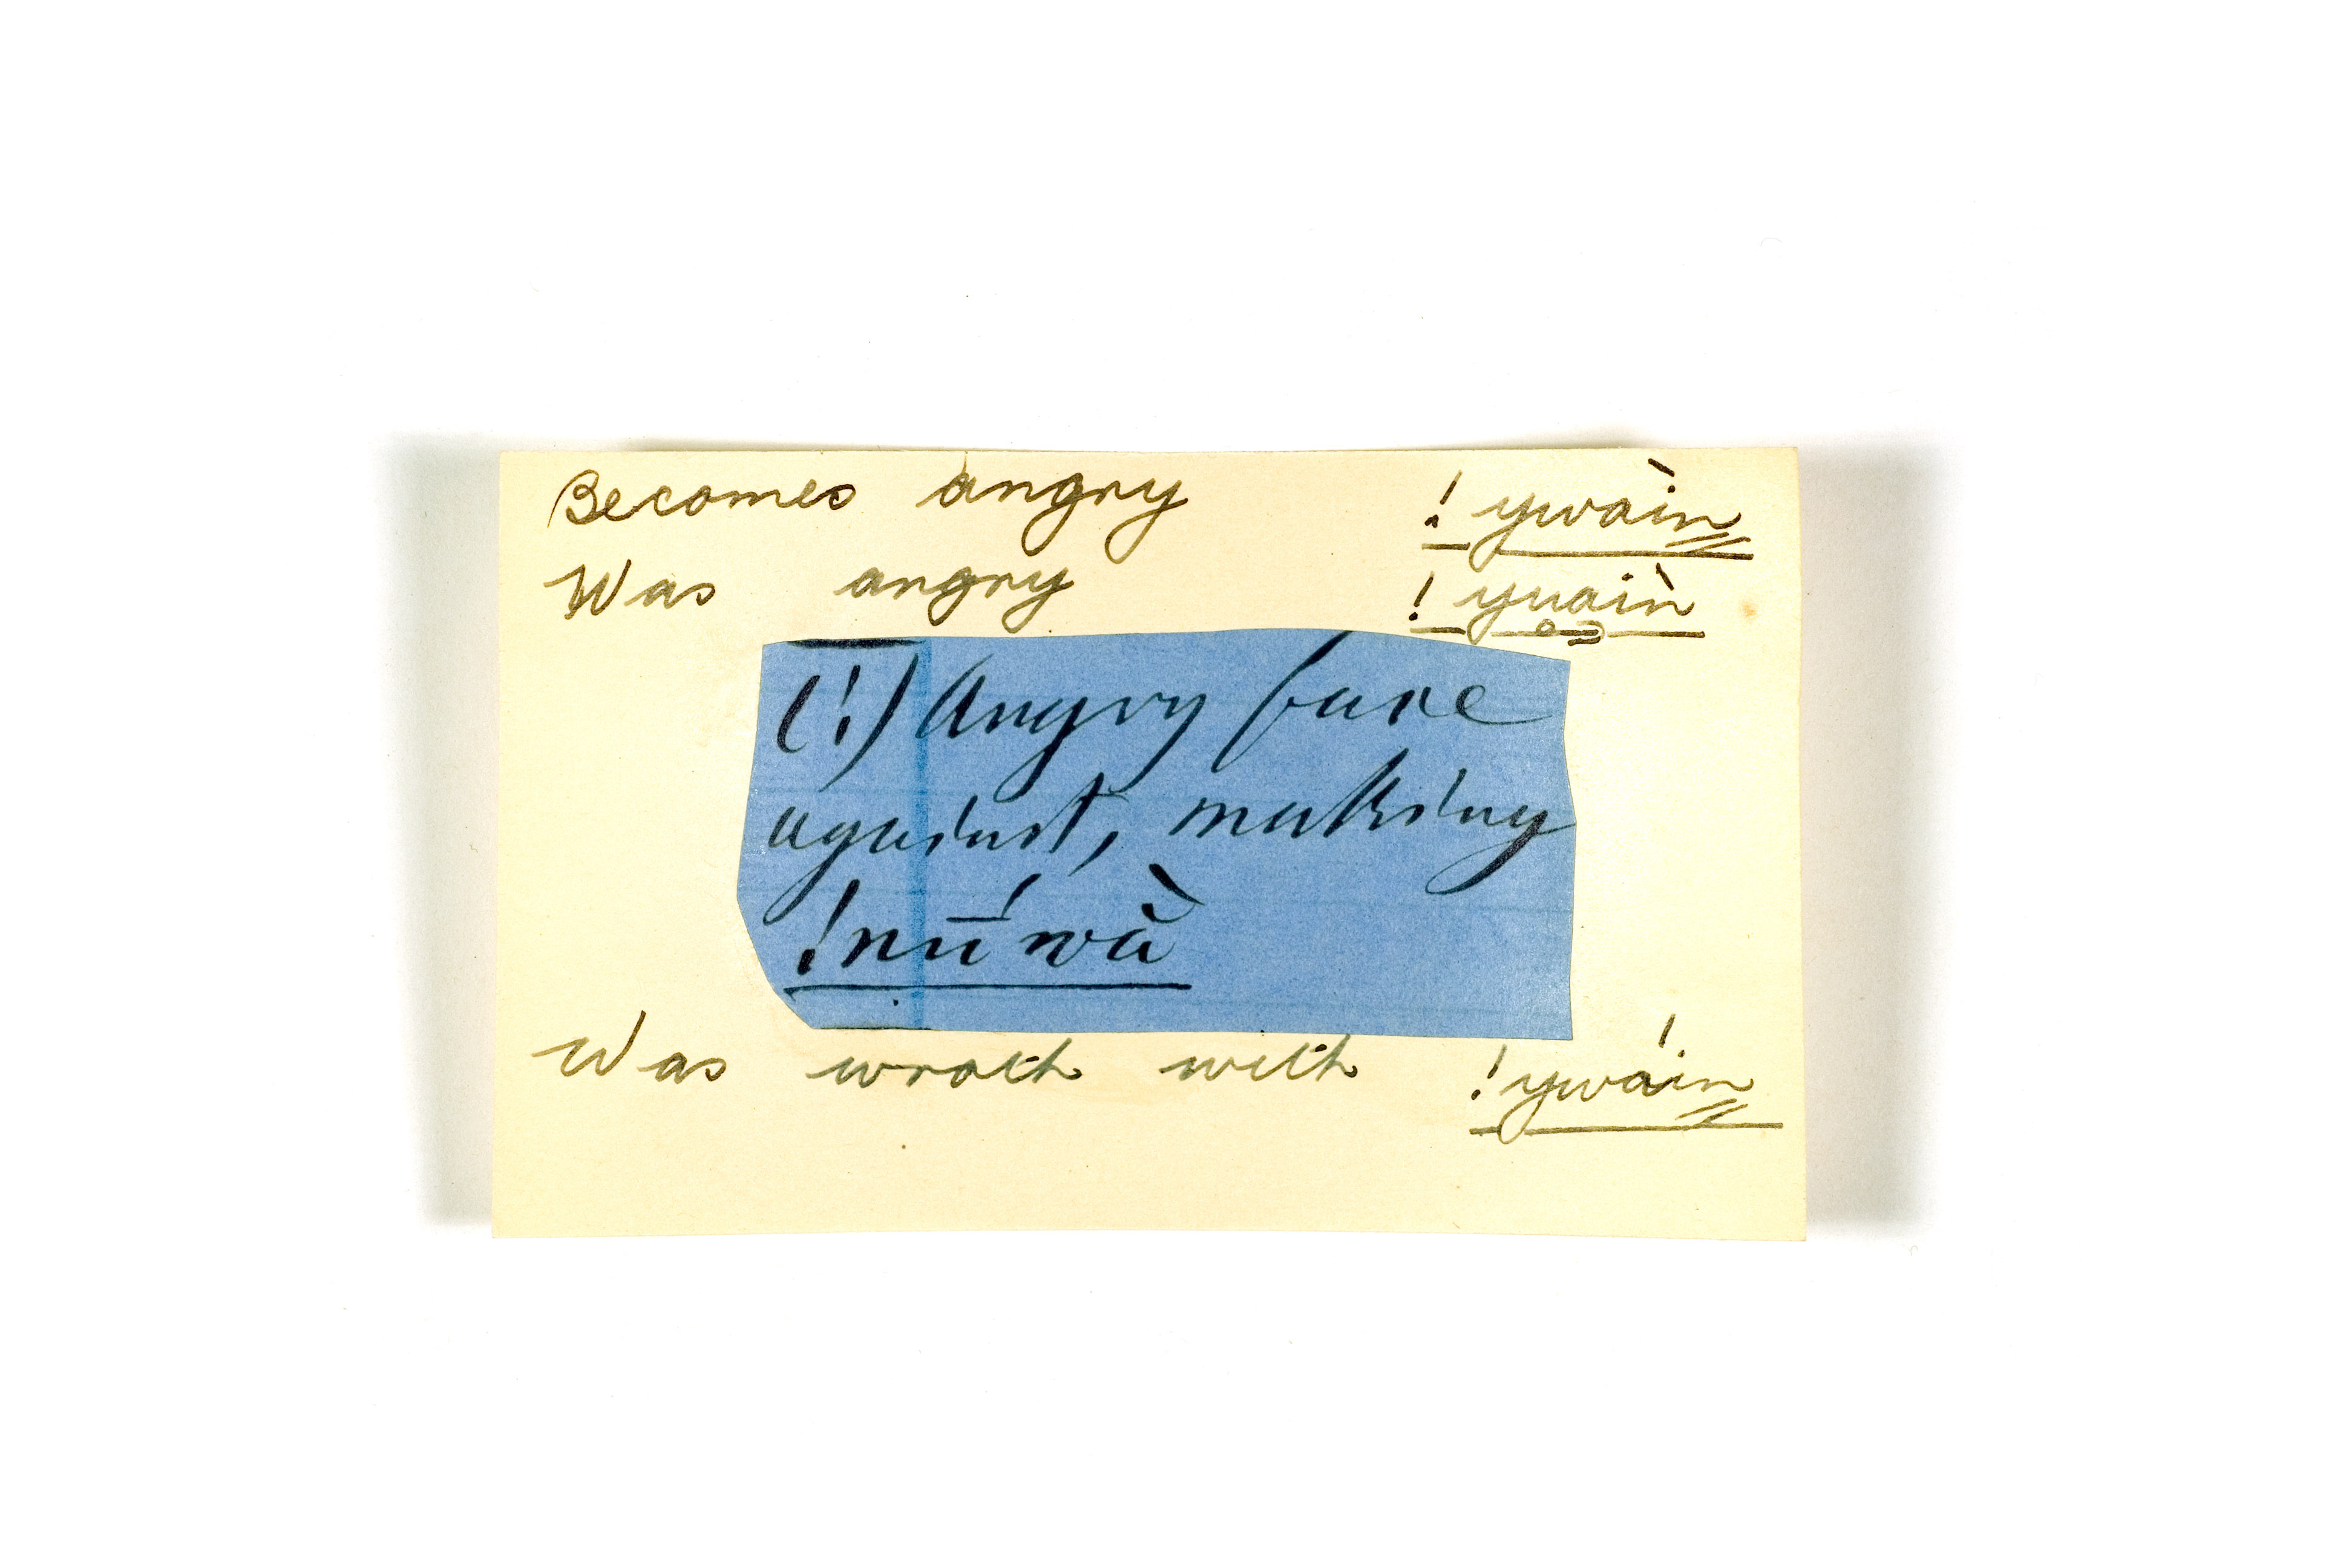 Becomes angry !ywàin
Was angry !yuaiǹ
(!) Angry face
against, making
!nū́ wȁ
Was wroth with !ywáin